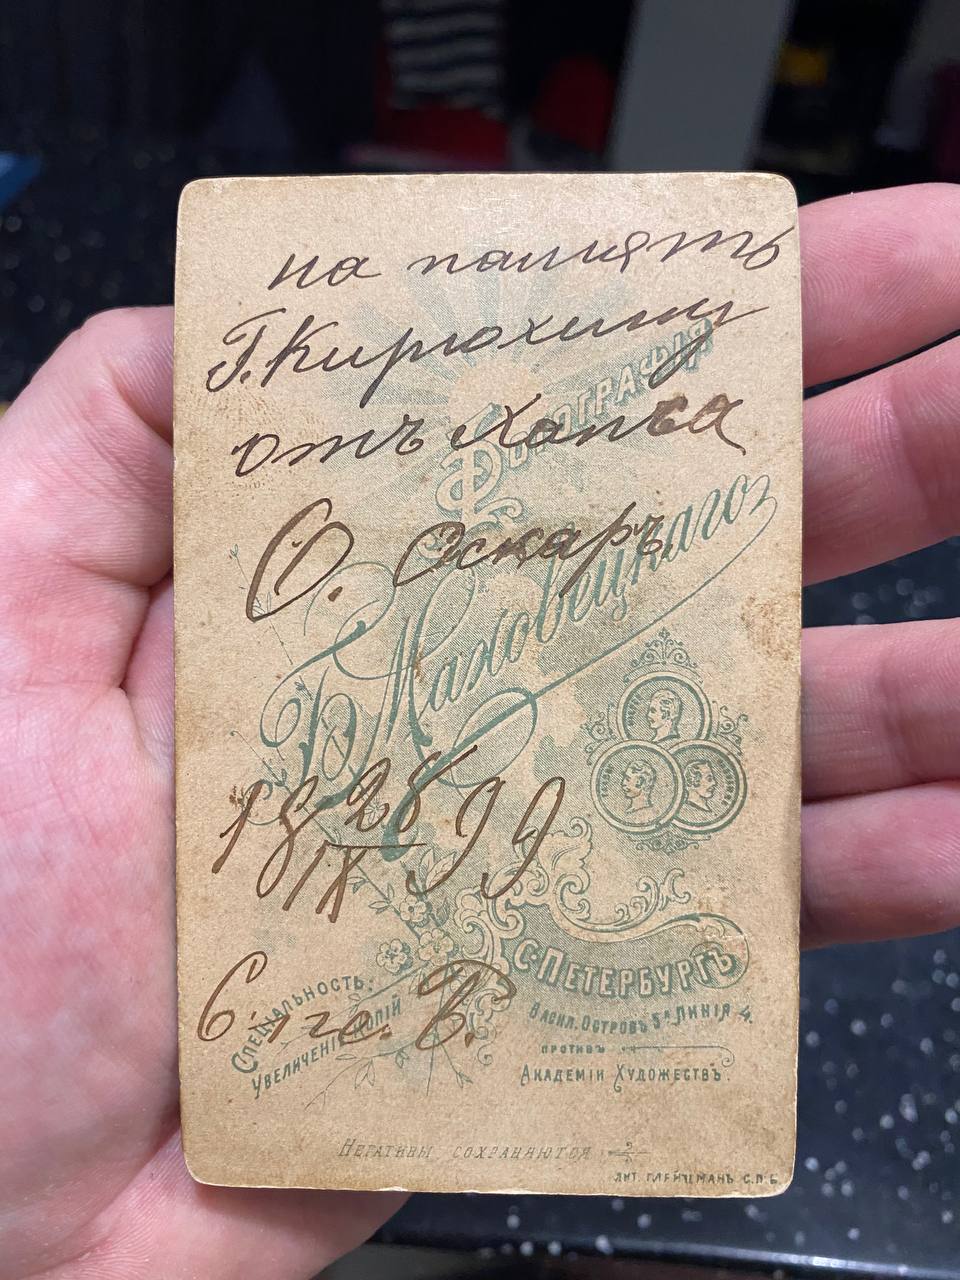 на память
Г. Кирюхину
отъ Ханса
О. Оскаръ.
18 28/IX 99
С. П. Б.
Фотографія
Б. Маховецкаго
С-Петербургъ
Васил. Островъ 5я линія 4.
противъ
Академіи Художествъ.
Спеціальность:
Увеличеніе копій
Негативы сохраняются
С.П.Б.